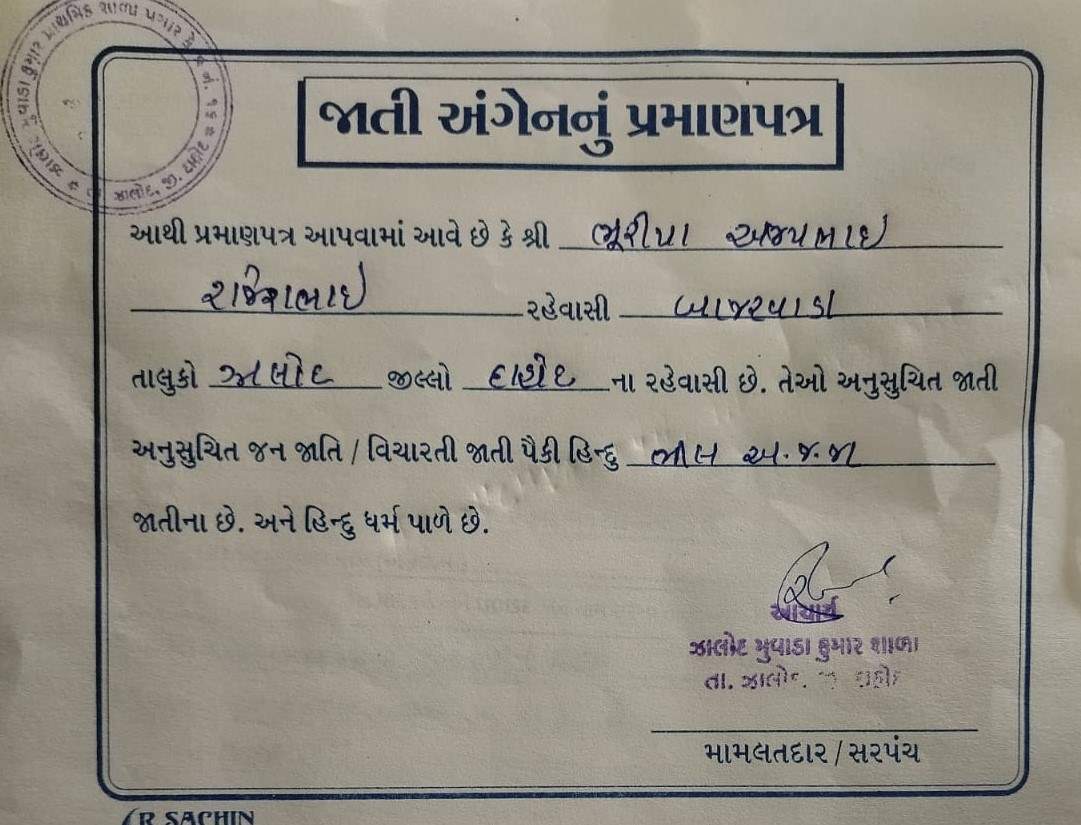 જાતી અંગેનનું પ્રમાણપત્ર
આથી પ્રમાણપત્ર આપવામાં આવે છે કે શ્રી ભૂરીયા અજયભાઇ
રાજેશભાઇ રહેવાસી બાજરવાડા
તાલુકો ઝાલોદ જીલ્લો દાહોદ ના રહેવાસી છે. તેઓ અનુસુચિત જાતી
અનુસુચિત જન જાતિ / વિચારતી જાતી પૈકી હિન્દુ ભીલ અ.જ.જા
જાતીના છે. અને હિન્દુ ધર્મ પાળે છે.
આચાર્ય
ઝાલોદ મુવાડા કુમાર શાળા
તા. ઝાલોદ જી દાહોદ
મામલતદાર / સરપંચ
R SACHIN